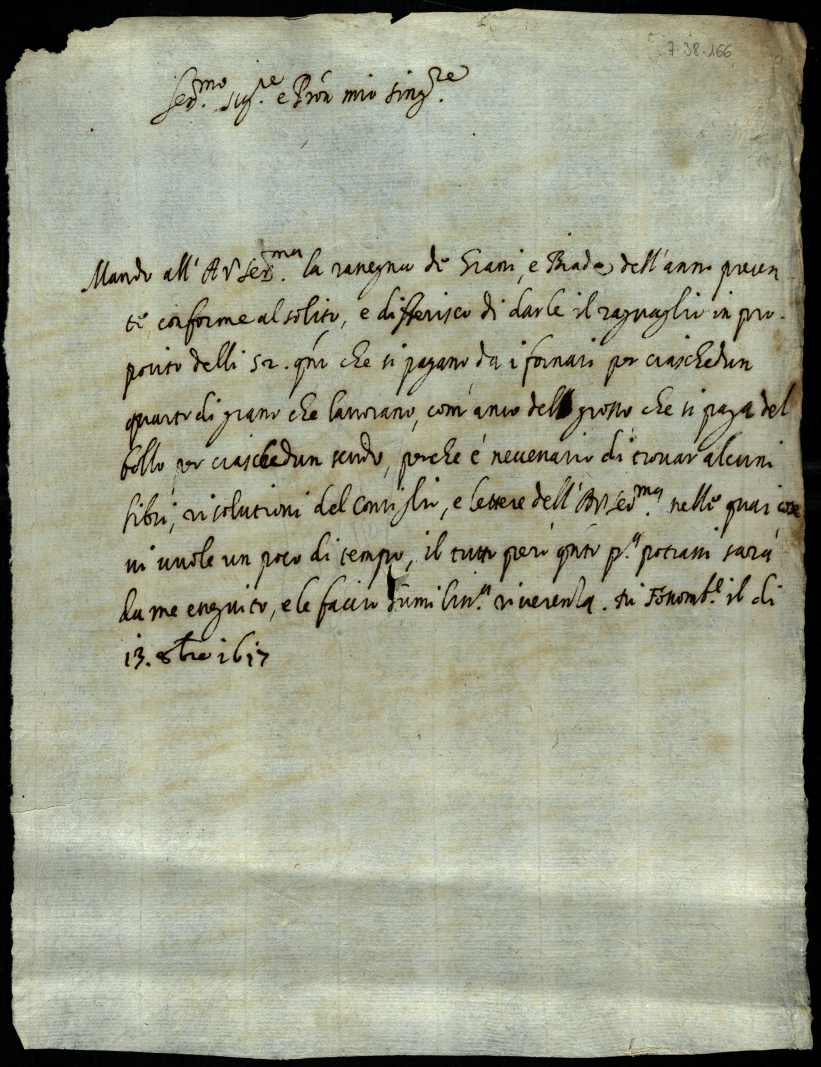 7-38-166
Ser.mo Sig.re e Pron mio Sing.re
Mando all' A V Ser.ma la rasegna de Grani, e Biade dell'anno presen
te conforme al solito, e differisco di darle il raguaglio in pro-
posito delli 52. qni che si pagano da i fornari per ciaschedun
quarto di grano che lavorano, com' anco del grosso, che si paga del
bollo per ciaschedun scudo, perche è necessario di trovar alcuni
libri, risolutioni del Consiglio, e lettere dell' A V Ser.ma nelle quai cose
vi vuole un poco di tempo, il tutto però qnto p.a potrassi sarà
da me eseguito, e le faccio humiliss.a riverenza. Di Fossomb.e il di
13. 8bre 1617